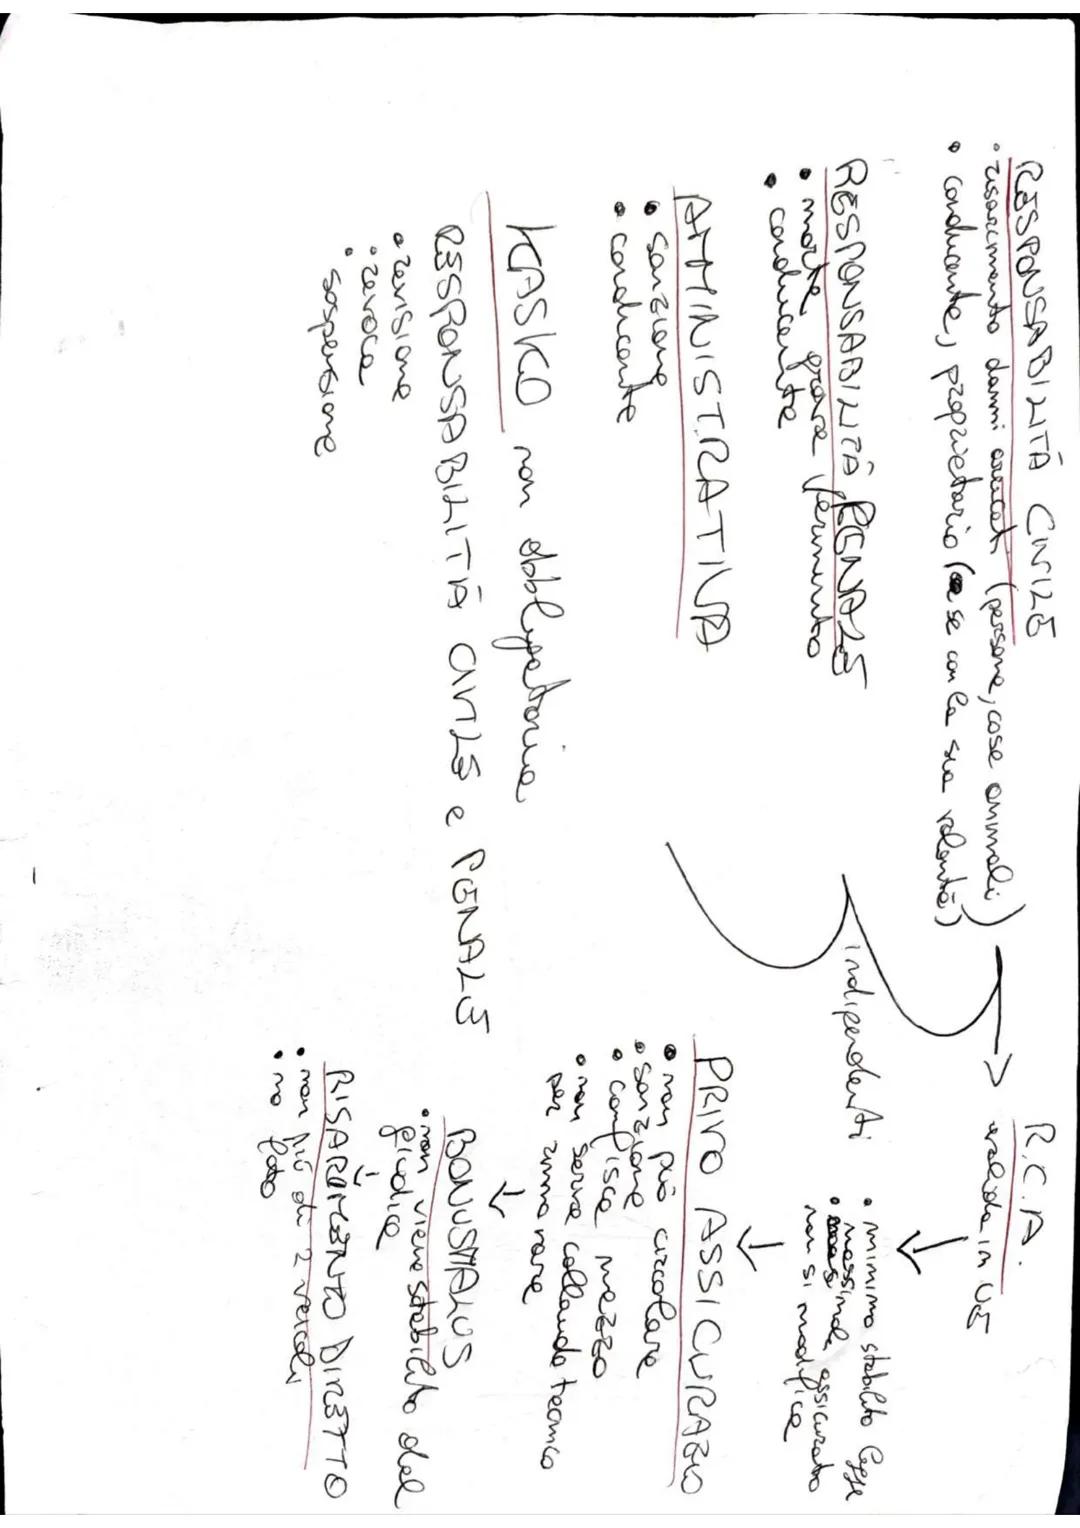 RESPONSABILITÀ CIVILE
• risarcimento danni arrecati (persone, cose animali)
• conducente, proprietario (se con la sua volontà)
RESPONSABILITÀ PENALE
• morte, grave ferimento
• conducente
AMMINISTRATIVA
• sanzione
• conducente
KASKO non obbligatoria
RESPONSABILITÀ CIVILE e PENALE
• revisione
• revoca
• sospensione
indipendenti
R.C.A.
valida in UE
• minimo stabilito legge
• massimale assicurato
non si modifica
PRIVO ASSICURAZIO
• non può circolare
• sanzione
• confisca mezzo
• non serve collaudo tecnico
per rinnovare
BONUSMALUS
• non viene stabilito dal
giudice
RISARCIMENTO DIRETTO
• non più di 2 veicoli
• no foto